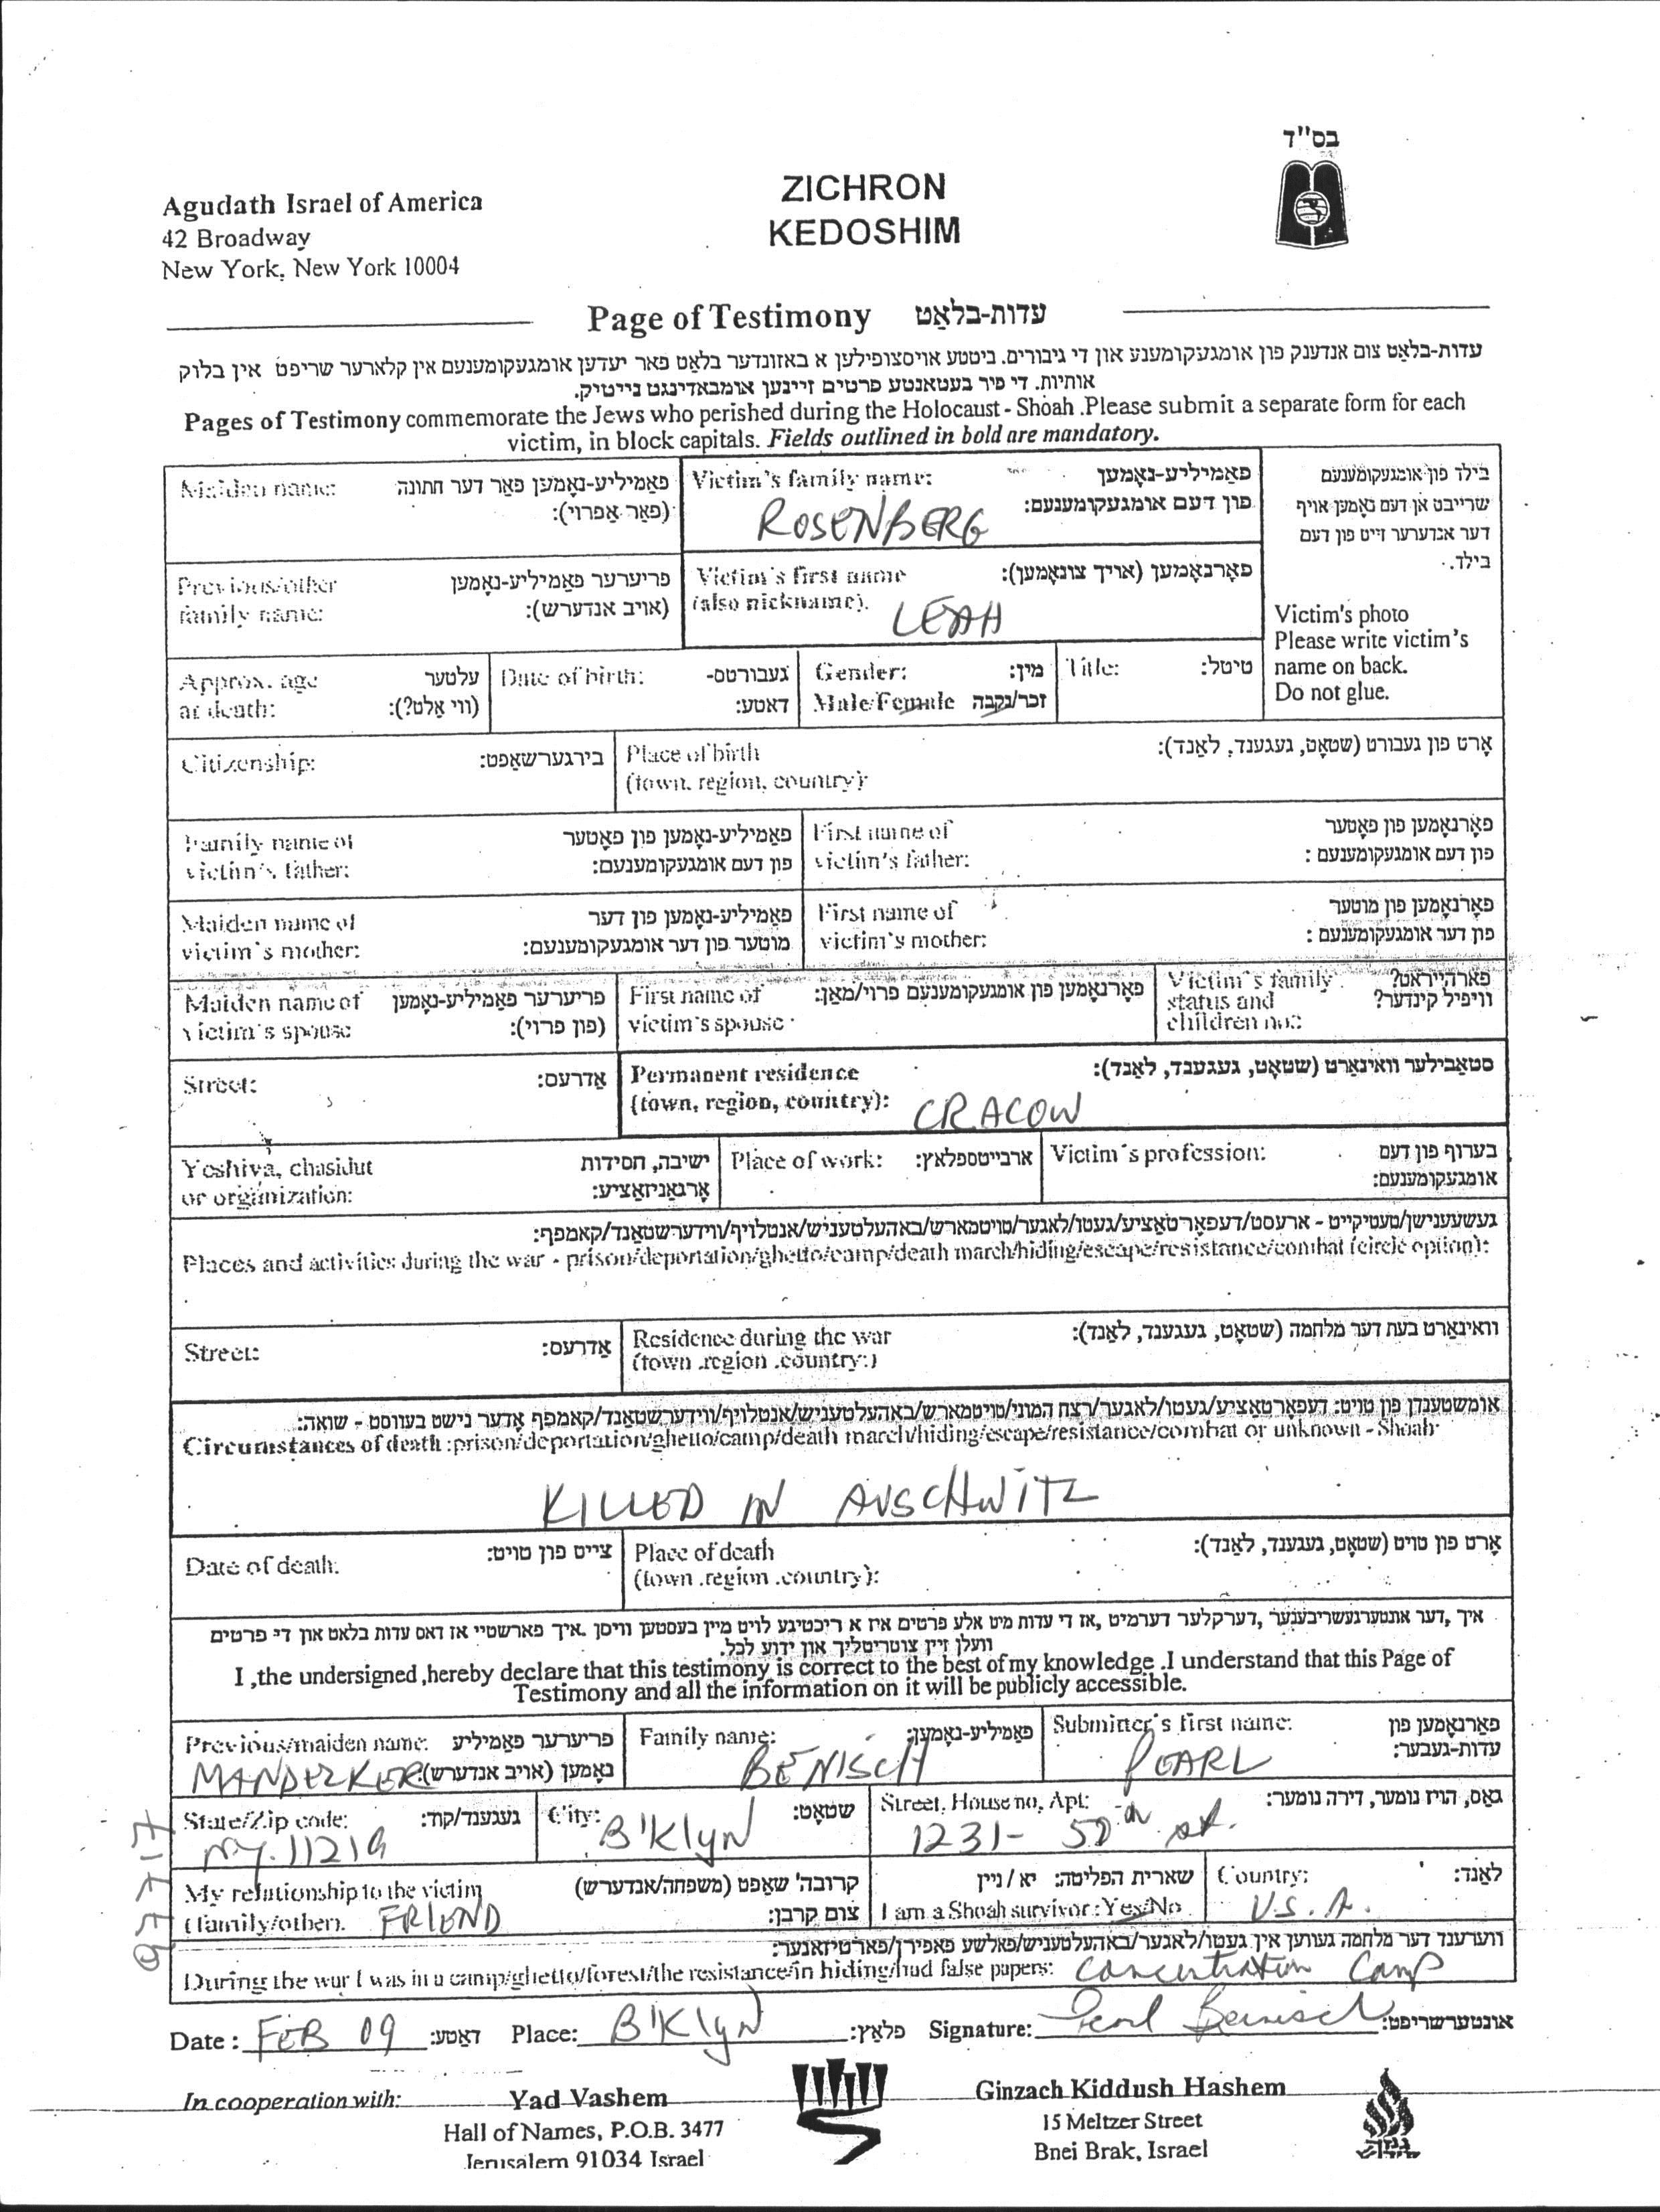 בס"ד
Agudath Israel of America
42 Broadway
New York, New York 10004
ZICHRON
KEDOSHIM
Page of Testimony עדות-בלאַט
עדות-בלאַט צום אנדענק פון אומגעקומענע און די גיבורים. ביטע אויסצופילען א באזונדער בלאַט פאר יעדען אומגעקומענעם אין קלארער שריפט אין בלוק
אותיות. די פיר בעטאנטע פרטים זיינען אומבאדינגט נייטיק.
Pages of Testimony commemorate the Jews who perished during the Holocaust - Shoah .Please submit a separate form for each
victim, in block capitals. Fields outlined in bold are mandatory.
Maiden name: פאַמיליע-נאָמען פאַר דער חתונה
(פאַר אַפרוי):
Victim's family name: פאַמיליע-נאָמען
פון דעם אומגעקומענעם:
ROSENBERG
בילד פון אומגעקומענעם
שרייבט אן דעם נאָמען אויף
דער אנדערער זייט פון דעם
בילד.
Victim's photo
Please write victim's
name on back.
Do not glue.
Previous/other פריערער פאַמיליע-נאָמען
family name: (אויב אנדערש):
Victim's first name פאָרנאָמען (אויך צונאָמען):
(also nickname).
LEAH
Approx. age עלטער
at death: (ווי אַלט?):
Date of birth: געבורטס-
דאַטע:
Gender: מין:
Male/Female זכר/נקבה
Title: טיטל:
Citizenship: בירגערשאַפט:
Place of birth אָרט פון געבורט (שטאָט, געגענד, לאַנד):
(town, region, country):
Family name of פאַמיליע-נאָמען פון פאָטער
victim's father: פון דעם אומגעקומענעם:
First name of פאָרנאָמען פון פאָטער
victim's father: פון דעם אומגעקומענעם :
Maiden name of פאַמיליע-נאָמען פון דער
victim's mother: מוטער פון דער אומגעקומענעם:
First name of פאָרנאָמען פון מוטער
victim's mother: פון דער אומגעקומענעם :
Maiden name of פריערער פאַמיליע-נאָמען
victim's spouse (פון פרוי):
First name of פאָרנאָמען פון אומגעקומענעם פרוי/מאַן:
victim's spouse
Victim's family פארהייראט?
status and וויפיל קינדער?
children no:
Street: אַדרעס:
Permanent residence סטאַבילער וואוינאָרט (שטאָט, געגענד, לאַנד):
(town, region, country): CRACOW
Yeshiva, chasidut ישיבה, חסידות
or organization: אָרגאַניזאַציע:
Place of work: ארבייטספלאץ:
Victim's profession: בערוף פון דעם
אומגעקומענעם:
געשעענישן/טעטיקייט - ארעסט/דעפאָרטאַציע/געטו/לאגער/טויטמארש/באַהעלטעניש/אנטלויף/ווידערשטאַנד/קאמפף:
Places and activities during the war - prison/deportation/ghetto/camp/death march/hiding/escape/resistance/combat (circle option):
Street: אַדרעס:
Residence during the war וואוינאָרט בעת דער מלחמה (שטאָט, געגענד, לאַנד):
(town .region .country:)
אומשטענדן פון טויט: דעפאָרטאַציע/געטו/לאגער/רצח המוני/טויטמארש/באַהעלטעניש/אנטלויף/ווידערשטאַנד/קאמפף אָדער נישט בעווסט - שואה:
Circumstances of death :prison/deportation/ghetto/camp/death march/hiding/escape/resistance/combat or unknown - Shoah
KILLED IN AUSCHWITZ
Date of death: צייט פון טויט:
Place of death אָרט פון טויט (שטאָט, געגענד, לאַנד):
(town .region .country):
איך ,דער אונטערגעשריבענער ,דערקלער דערמיט ,אז די עדות מיט אלע פרטים איז א ריכטיגע לויט מיין בעסטען וויסן .איך פארשטיי אז דאס עדות בלאט און די פרטים
וועלן זיין צוטריטליך און ידוע לכל.
I ,the undersigned ,hereby declare that this testimony is correct to the best of my knowledge .I understand that this Page of
Testimony and all the information on it will be publicly accessible.
Previous/maiden name: פריערער פאַמיליע
נאָמען (אויב אנדערש):
MANDELKER
Family name: פאַמיליע-נאָמען:
BENISCH
Submitter's first name: פאָרנאָמען פון
עדות-געבער:
PEARL
State/Zip code: געגענד/קוד:
NY. 11219
City: שטאָט:
B'Klyn
Street, House no, Apt: גאַס, הויז נומער, דירה נומער:
1231- 50th st.
My relationship to the victim קרובה' שאַפט (משפחה/אנדערש)
(family/other). צום קרבן:
FRIEND
שארית הפליטה: יא / ניין
I am a Shoah survivor: Yes/No
Country: לאַנד:
U.S.A.
ווערענד דער מלחמה געווען אין געטו/לאגער/באַהעלטעניש/פאלשע פאפירן/פארטיזאנער:
During the war I was in a camp/ghetto/forest/the resistance/in hiding/had false papers: Concentration Camp
Date : FEB 09 דאַטע: Place: B'Klyn פלאַץ: Signature: Pearl Benisch אונטערשריפט:
97717
In cooperation with: Yad Vashem
Hall of Names, P.O.B. 3477
Jerusalem 91034 Israel
Ginzach Kiddush Hashem
15 Meltzer Street
Bnei Brak, Israel